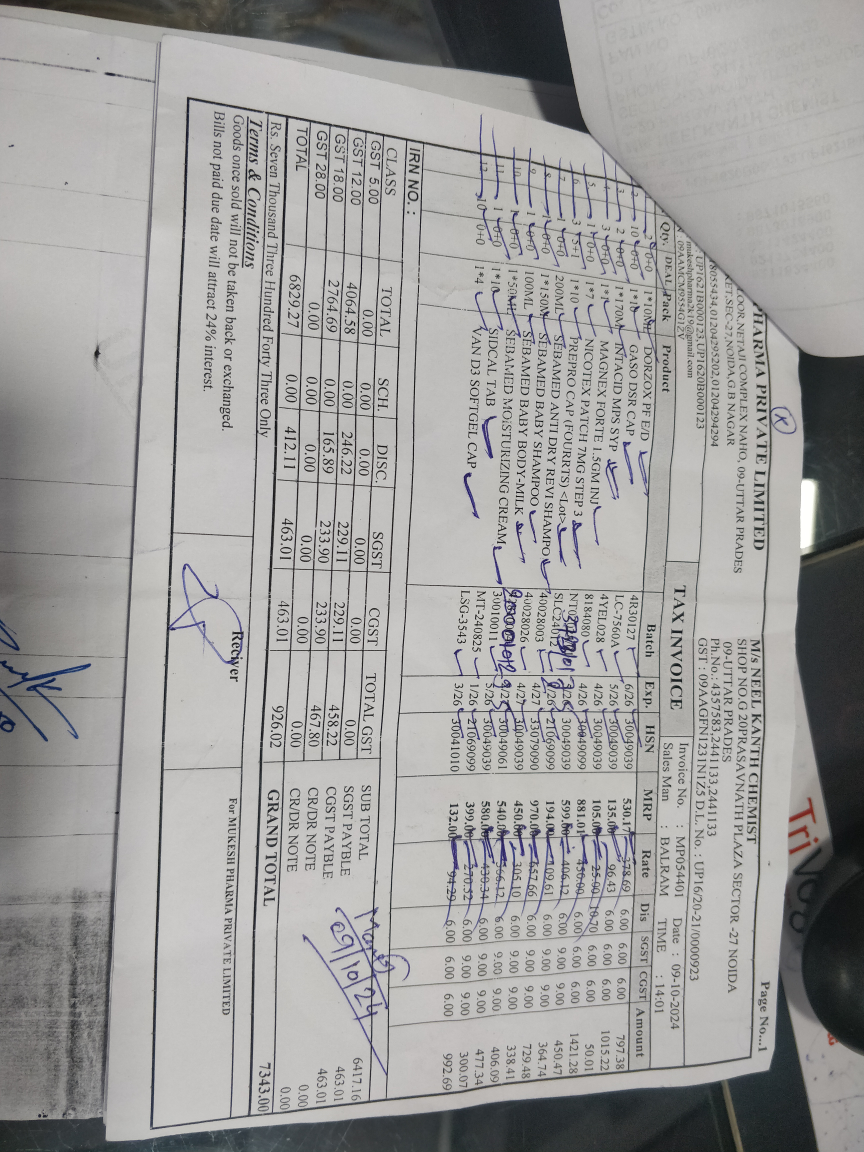 PHARMA PRIVATE LIMITED
FLOOR,NETAJI COMPLEX NAHO, 09-UTTAR PRADES
KET,SEC-27,NOIDA,G.B NAGAR
8055434,01204295202,01204294294
UP1621B000123,UP1620B000123
mukeshpharma2k19@gmail.com
09AAMCM9554G1ZV
Page No...1
M/s NEEL KANTH CHEMIST
SHOP NO.G 20PRASAVNATH PLAZA SECTOR -27 NOIDA
09-UTTAR PRADES
Ph.No.: 4357583,2441133,2441133
GST : 09AAGFN1231N1Z5 D.L. No. : UP16/20-21/0000923
TAX INVOICE
Invoice No. : MP054401 Date : 09-10-2024
Sales Man : BALRAM TIME : 14:01
Qty. DEAL Pack Product Batch Exp. HSN MRP Rate Dis SGST CGST Amount
2 0+0 1*10ML DORZOX PF E/D 4R30127 6/26 30049039 530.17 378.69 6.00 6.00 6.00 797.38
2. 10 0+0 1*10 GASO DSR CAP LC-7560A 5/26 30049039 135.00 96.43 6.00 6.00 6.00 1015.22
3. 2 0+0 1*170M INTACID MPS SYP 4YEL028 4/26 30049039 105.00 25.00 6.00 6.00 50.01
4. 3 0+0 1*1 MAGNEX FORTE 1.5GM INJ 8184080 4/26 30049099 881.01 450.00 6.00 6.00 1421.28
5. 1 0+0 1*7 NICOTEX PATCH 7MG STEP 3 30049039 599.00 406.12 6.00 6.00 6.00 450.47
6. 3 .5+1 1*10 PREPRO CAP (FOURRTS) <Lot> 21069099 194.00 109.61 6.00 9.00 9.00 364.74
7. 1 0+0 200ML SEBAMED ANTI DRY REVI SHAMPO 40028003 4/27 33079090 970.00 657.66 6.00 9.00 9.00 729.48
8. 1 0+0 1*150M SEBAMED BABY SHAMPOO 40028026 4/27 30049039 450.00 305.10 6.00 9.00 9.00 338.41
9. 1 0+0 100ML SEBAMED BABY BODY-MILK 30049061 540.00 366.12 6.00 9.00 9.00 406.09
10. 1 0+0 1*50ML SEBAMED MOISTURIZING CREAM 30010011 5/26 30049039 580.00 430.34 6.00 9.00 9.00 477.34
11. 1 0+0 1*10 SIDCAL TAB MT-240825 1/26 21069099 399.00 270.52 6.00 9.00 9.00 300.07
12. 10 0+0 1*4 VAN D3 SOFTGEL CAP LSG-3543 3/26 30041010 132.00 94.29 6.00 6.00 6.00 992.69
IRN NO. :
CLASS TOTAL SCH. DISC. SGST CGST TOTAL GST
GST 5.00 0.00 0.00 0.00 0.00 0.00 0.00
GST 12.00 4064.58 0.00 246.22 229.11 229.11 458.22
GST 18.00 2764.69 0.00 165.89 233.90 233.90 467.80
GST 28.00 0.00 0.00 0.00 0.00 0.00 0.00
TOTAL 6829.27 0.00 412.11 463.01 463.01 926.02
SUB TOTAL 6417.16
SGST PAYBLE 463.01
CGST PAYBLE 463.01
CR/DR NOTE 0.00
CR/DR NOTE 0.00
09/10/24
Rs. Seven Thousand Three Hundred Forty Three Only
GRAND TOTAL 7343.00
Terms & Conditions
Goods once sold will not be taken back or exchanged.
Bills not paid due date will attract 24% interest.
Reciver
For MUKESH PHARMA PRIVATE LIMITED